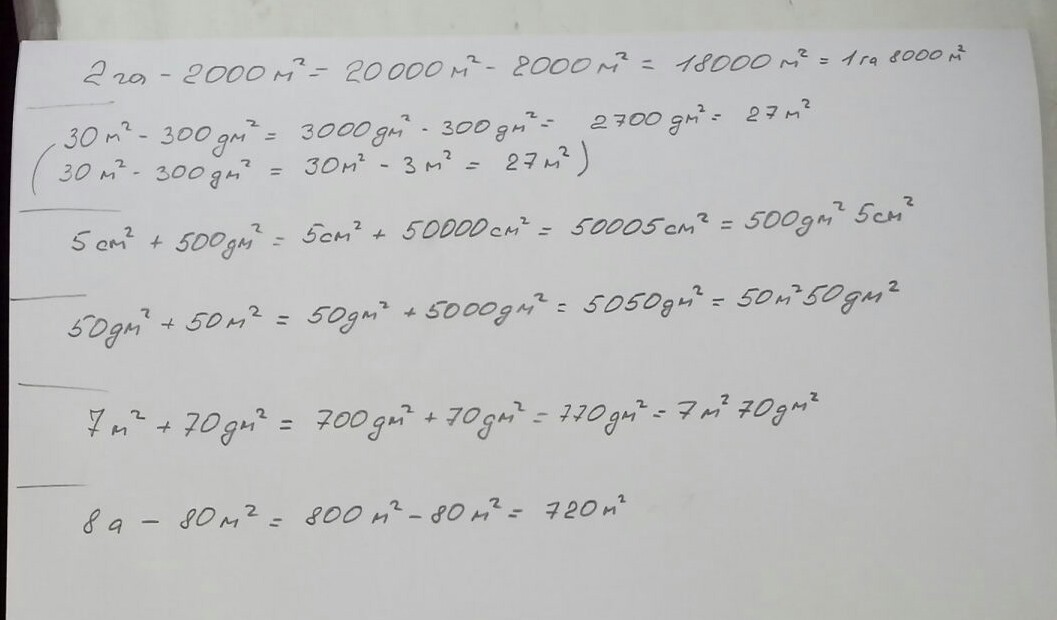 2 га - 2000 м² = 20000 м² - 2000 м² = 18000 м² = 1 га 8000 м²
30 м² - 300 дм² = 3000 дм² - 300 дм² = 2700 дм² = 27 м²
(30 м² - 300 дм² = 30 м² - 3 м² = 27 м²)
5 см² + 500 дм² = 5 см² + 50000 см² = 50005 см² = 500 дм² 5 см²
50 дм² + 50 м² = 50 дм² + 5000 дм² = 5050 дм² = 50 м² 50 дм²
7 м² + 70 дм² = 700 дм² + 70 дм² = 770 дм² = 7 м² 70 дм²
8 а - 80 м² = 800 м² - 80 м² = 720 м²